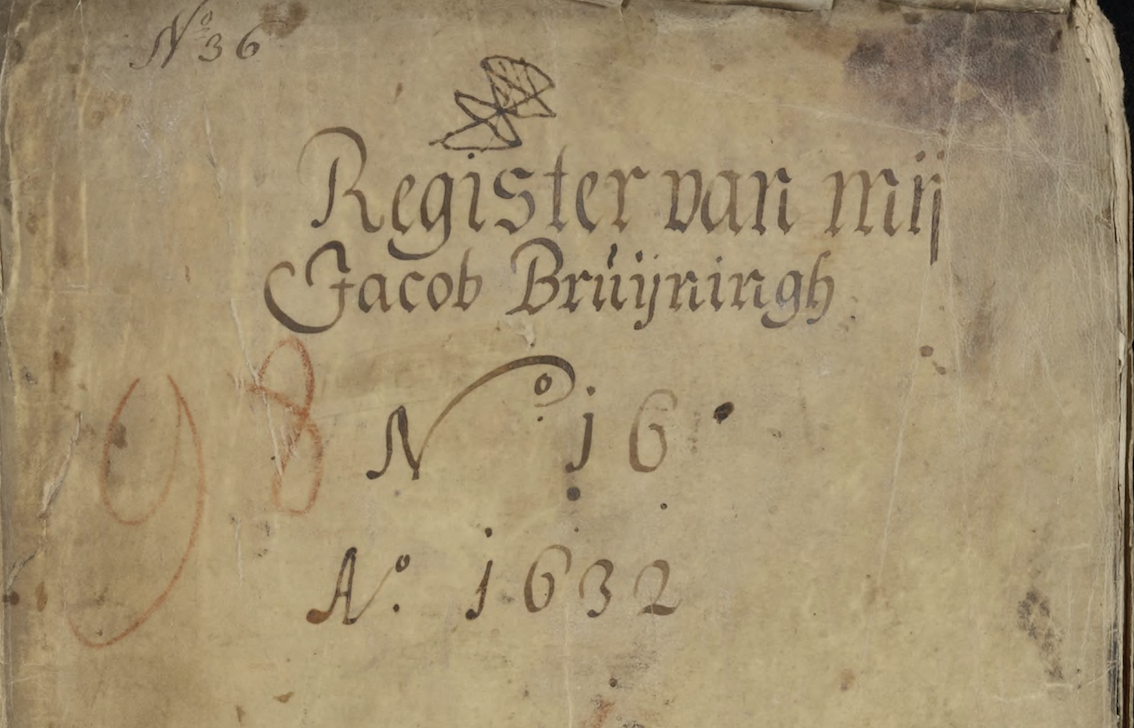 Nº 36
Register van mij
Jacob Brúijningh
98
Nº 16
Aº. 1632